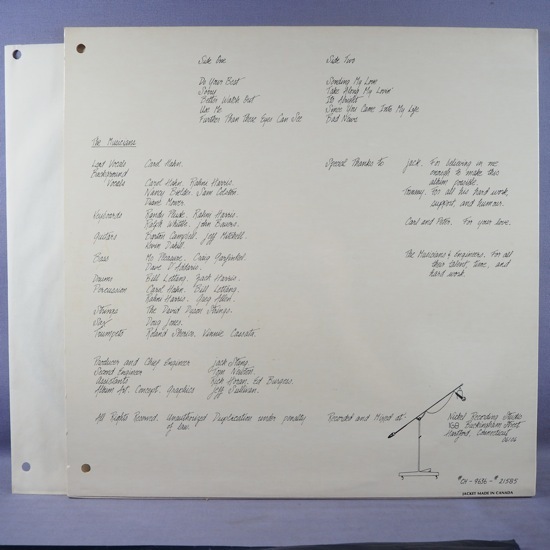 Side One
Do Your Best
Sorry
Better Watch Out
Use Me
Further Than These Eyes Can See
Side Two
Sending My Love
Take Along My Lovin'
Its Alright
Since You Came Into My Life
Bad News
The Musicians
Lead Vocals Carol Hahn.
Background
Vocals Carol Hahn. Rahni Harris.
Nancy Bieldin. Sam
Diane Mower.
Keyboards Randy Pluck. Rahni Harris.
Ralph Whittle. John Bowers.
Guitars Barton Campbell. Jeff Mitchell.
Kevin Dahill.
Bass Mr. Pleasure. Craig Garfinkel.
Dave D'Addario.
Drums Bill Letlang. Zach Harris.
Percussion Carol Hahn. Bill Letlang.
Rahni Harris. Greg Allen.
Strings The David Dyson Strings.
Sax Doug Jones.
Trumpets Roland Vinnie Cassata.
Special Thanks to Jack. For believing in me
enough to make this
album possible.
Tommy. For all his hard work,
support, and humour.
Carl and For your love.
The Musicians & Engineers. For all
their talent, time, and
hard work.
Producer and Chief Engineer Jack Stang.
Second Engineer Tom Newton.
Assistants Rick Horan. Ed Burgess.
Album Art. Concept. Graphics Jeff Sullivan.
All Rights Reserved. Unauthorized Duplication under penalty
of law!
Recorded and Mixed at:
Nickel Recording Studio
168 Buckingham Street
Hartford, Connecticut
06106
#CH-9636-#21585
JACKET MADE IN CANADA